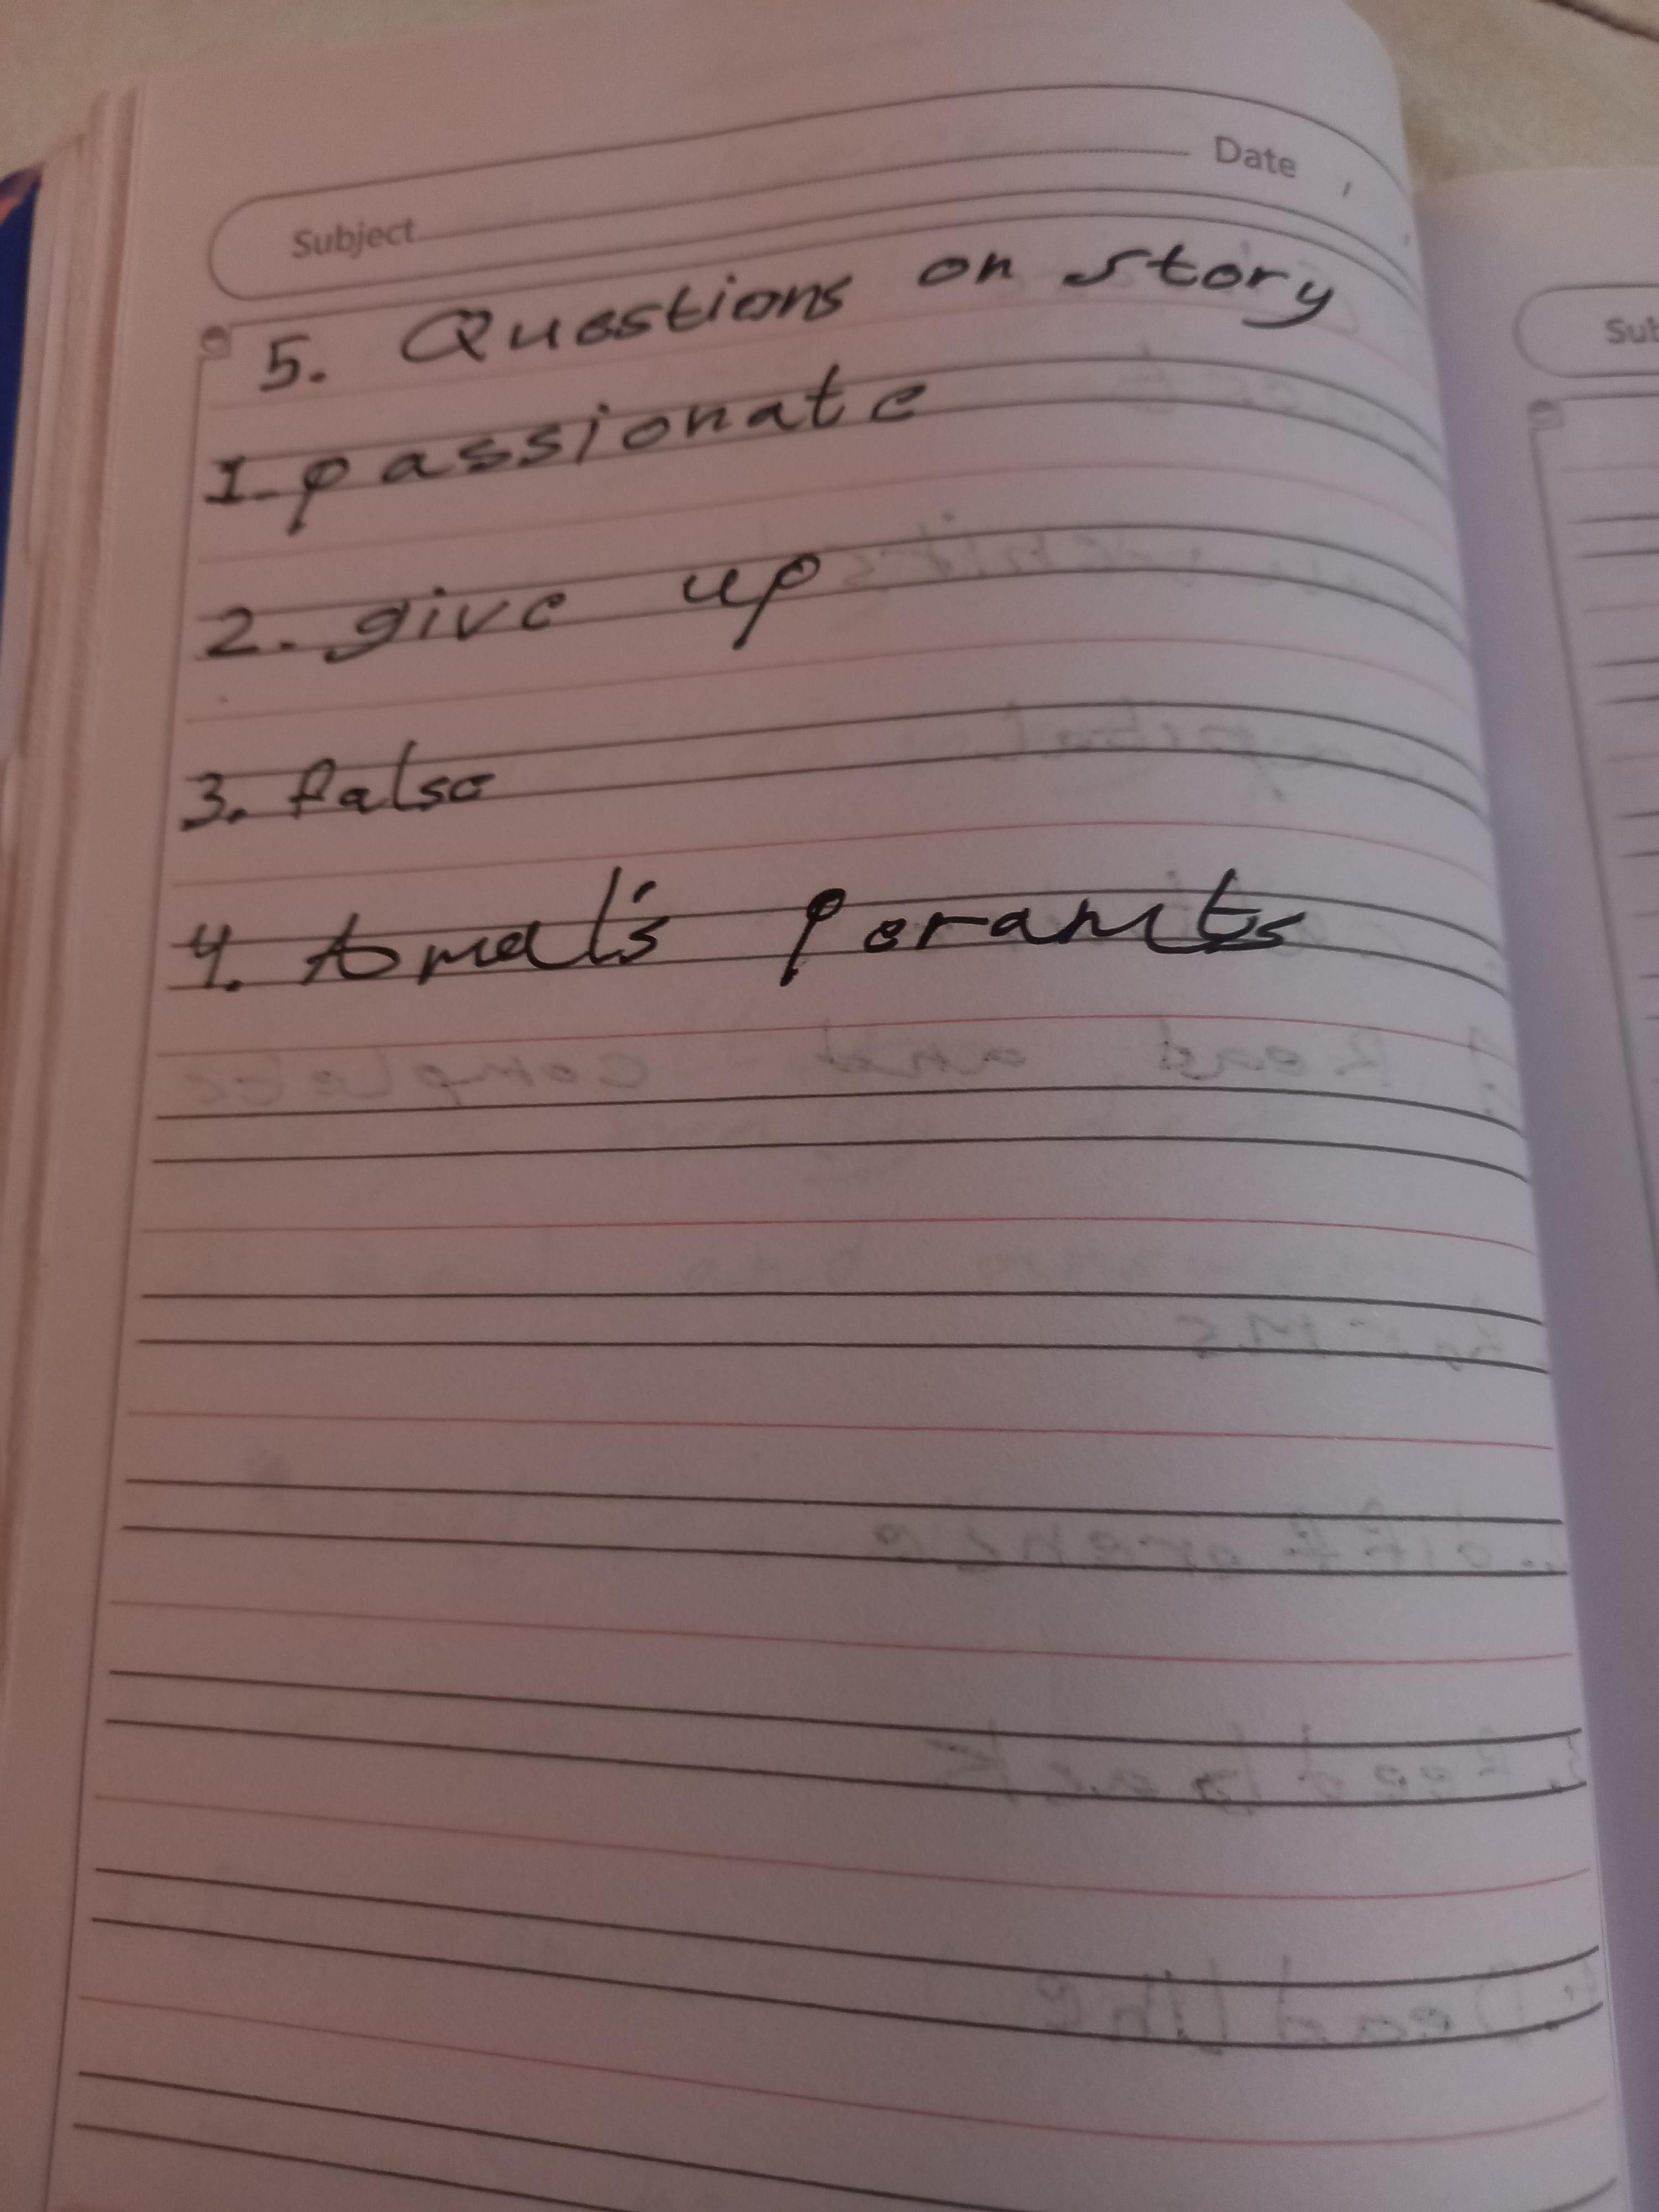 Subject Date
5. Questions on story
1. passionate
2. give up
3. false
4. Amal's perants
Sub